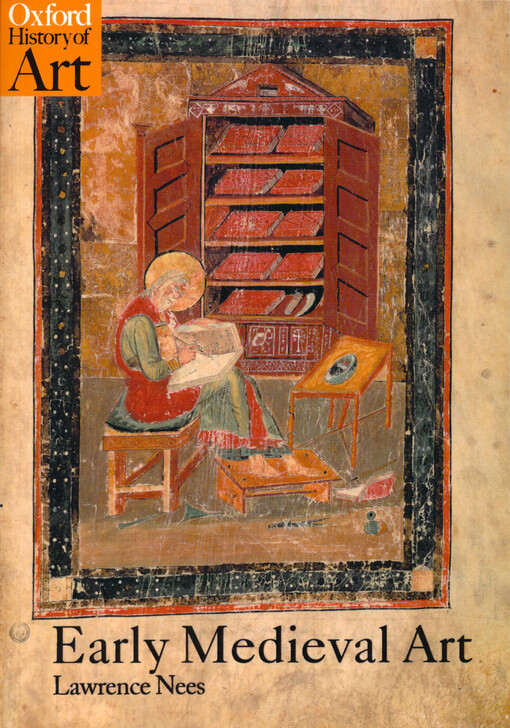 Oxford
History of
Art
Early Medieval Art
Lawrence Nees